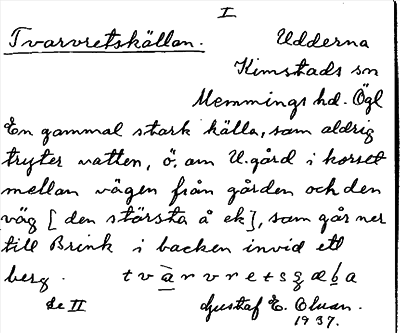 I
Tvarvretskällan. Udderna
Kimstads sn
Memmings hd. Ögl
En gammal stark källa, som aldrig
tryter vatten, ö. om U.gård i korset
mellan vägen från gården och den
väg [den största å ek], som går ner
till Brink i backen invid ett
berg. tvàrvretsȝæḷa
Se II Gustaf E. Oluan.
1937.